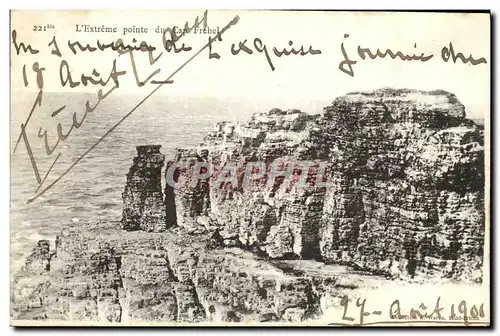 221 bis L'Extrême pointe du Cap Fréhel
En souvenir de l'exquise journée du
18 Août
CPARAMA
27 - Août 1901